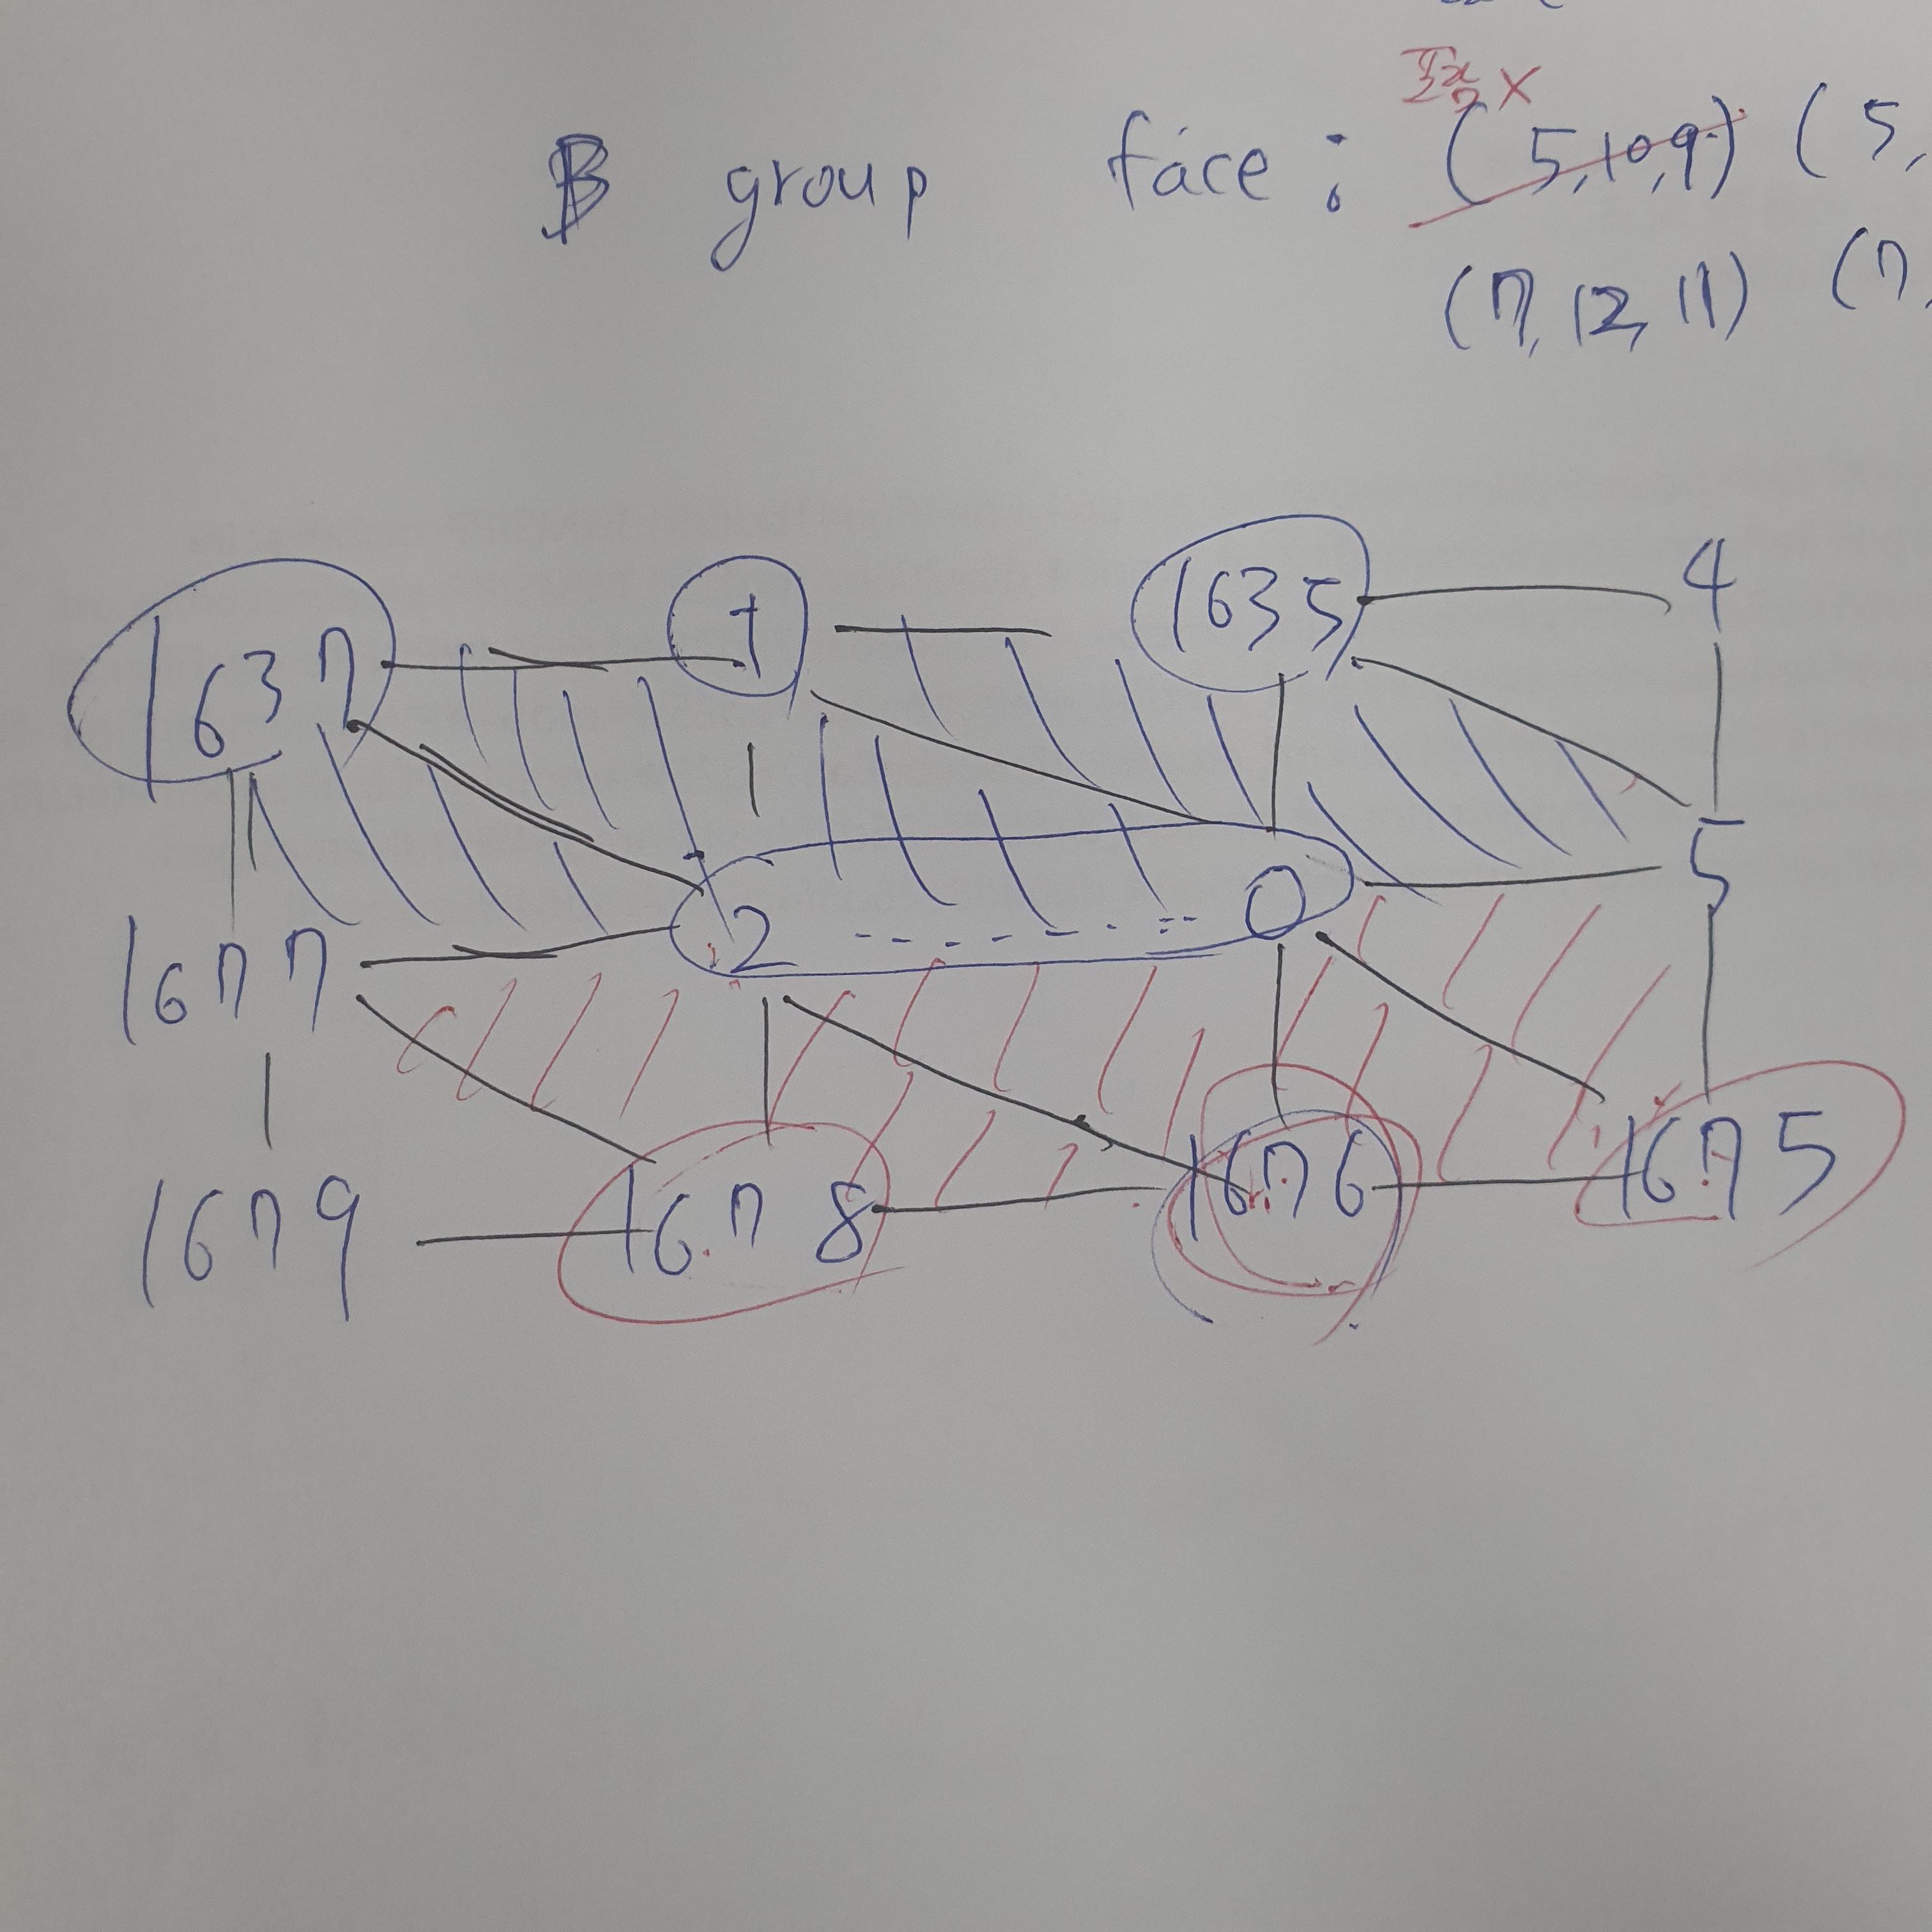 B group face : (5,10,9) (5,
(7,12,11) (7,
1637 1 1635 4
1677 2 0 5
1679 1678 1676 1675